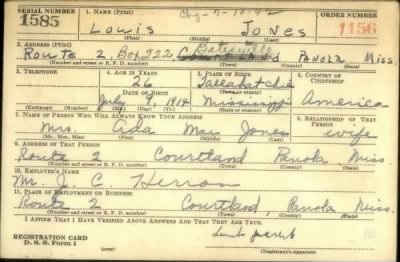 SERIAL NUMBER 1. NAME (Print) Chg-7-18-42 ORDER NUMBER
1585 Louis Jones 1156
2. ADDRESS (Print) Batesville
Route 2, Box 222 Courtland Panola Miss
(Number and street or R. F. D. number) (Town) (County) (State)
3. TELEPHONE 4. AGE IN YEARS 5. PLACE OF BIRTH 6. COUNTRY OF CITIZENSHIP
26 Tallahatchie
DATE OF BIRTH (Town or county)
July 1914 Mississippi America
(Exchange) (Number) (Mo.) (Day) (Yr.) (State or country)
7. NAME OF PERSON WHO WILL ALWAYS KNOW YOUR ADDRESS 8. RELATIONSHIP OF THAT PERSON
Mrs. Ada Mae Jones wife
9. ADDRESS OF THAT PERSON
Route 2 Courtland Panola Miss.
(Number and street or R. F. D. number) (Town) (County) (State)
10. EMPLOYER'S NAME
Mr. J. C. Herron
11. PLACE OF EMPLOYMENT OR BUSINESS
Route 2 Courtland, Panola Miss.
(Number and street or R. F. D. number) (Town) (County) (State)
I AFFIRM THAT I HAVE VERIFIED ABOVE ANSWERS AND THAT THEY ARE TRUE.
REGISTRATION CARD
D. S. S. Form 1 (Registrant's signature)